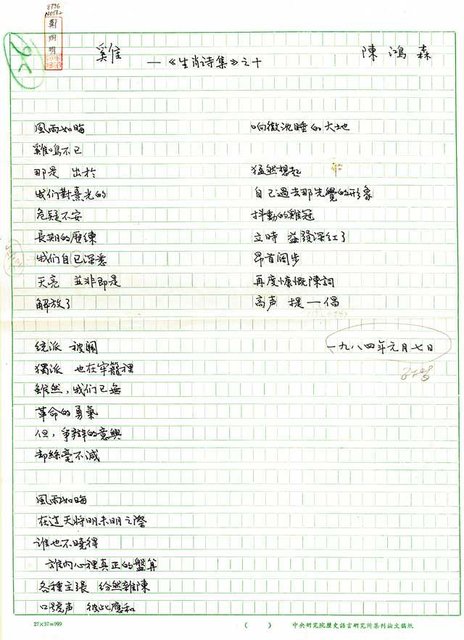 雞
—《生肖诗集》之十
陳鴻森
風雨如晦
雞鳴不已
那是 出於
我们對熹光的
危疑不安
長期的歷練
我們自已深悉
天亮 並非即是
解放了
統派 被關
獨派 也在牢籠裡
雖然，我们已無
革命的勇氣
但，爭辯的意興
却絲毫不減
風雨如晦
在这天将明未明之際
谁也不曉得
誰的心裡真正的盤算
各種主張 紛然雜陳
口號声 彼此應和
响徹沈睡的大地
猛然想起
自己過去那先覺的形象
抖動的雞冠
立時 益發深红了
昂首阔步
再度慷慨陳詞
高声 提一倡
一九八四年元月七日
27×37=999
( )
中央研究院歷史語言研究所集刊論文稿紙